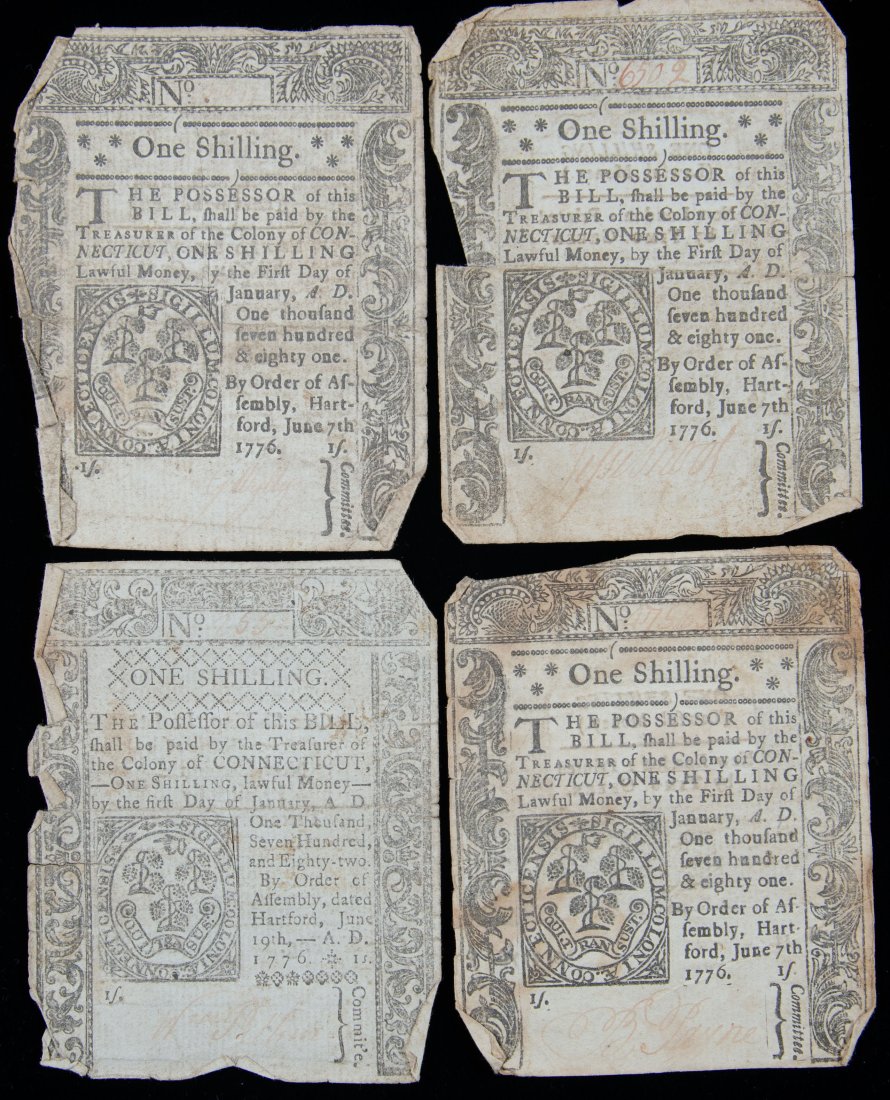 No.
One Shilling.
THE POSSESSOR of this
BILL, ſhall be paid by the
TREASURER of the Colony of CON-
NECTICUT, ONE SHILLING
Lawful Money, by the Firſt Day of
January, A. D.
One thouſand
ſeven hundred
& eighty one.
By Order of Aſ-
ſembly, Hart-
ford, June 7th
1776. 1ſ.
SIGILLUM.COLONIÆ.CONNECTICENSIS
QUI TRAN SUST.
1ſ.
Committee.
No. 6502
One Shilling.
THE POSSESSOR of this
BILL, ſhall be paid by the
TREASURER of the Colony of CON-
NECTICUT, ONE SHILLING
Lawful Money, by the Firſt Day of
January, A. D.
One thouſand
ſeven hundred
& eighty one.
By Order of Aſ-
ſembly, Hart-
ford, June 7th
1776. 1ſ.
SIGILLUM.COLONIÆ.CONNECTICENSIS
QUI TRAN SUST.
1ſ.
Committee.
No.
ONE SHILLING.
THE Poſſeſſor of this BILL,
ſhall be paid by the Treaſurer of
the Colony of CONNECTICUT,
—ONE SHILLING, lawful Money—
by the firſt Day of January, A. D.
One Thouſand,
Seven Hundred,
and Eighty-two.
By Order of
Aſſembly, dated
Hartford, June
19th,— A. D.
1776. 1s.
1ſ.
Committ'e.
No.
One Shilling.
THE POSSESSOR of this
BILL, ſhall be paid by the
TREASURER of the Colony of CON-
NECTICUT, ONE SHILLING
Lawful Money, by the Firſt Day of
January, A. D.
One thouſand
ſeven hundred
& eighty one.
By Order of Aſ-
ſembly, Hart-
ford, June 7th
1776. 1ſ
SIGILLUM.COLONIÆ.CONNECTICENSIS
QUI TRAN SUST.
1ſ.
B Payne
Committee.